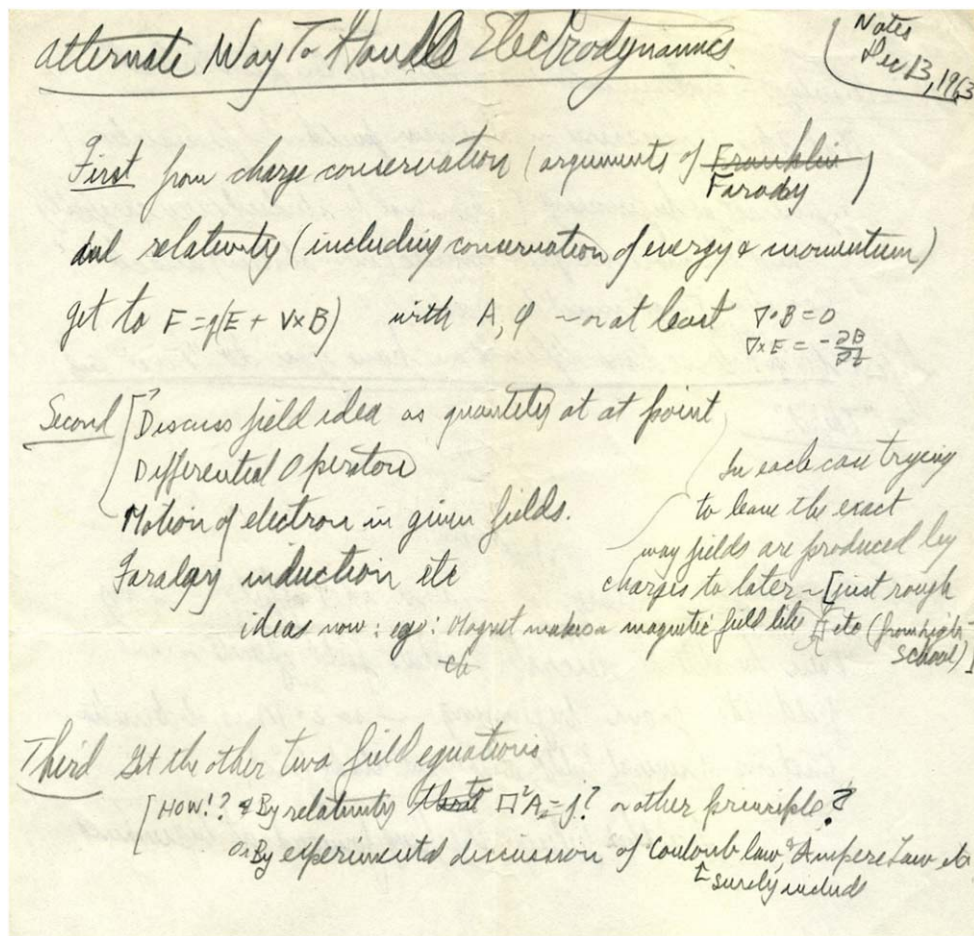 Alternate Way To Handle Electrodynamics.
Notes
Dec 13, 1963
First from charge conservation (arguments of Franklin Farady)
and relativity (including conservation of energy & momentum)
get to F = q(E + V×B) with A, φ – or at least ∇·B = 0
∇×E = -∂B/∂t
Second [Discuss field idea as quantity at at point
Differential Operators
Motion of electron in given fields.
Faraday induction etc
In each case trying
to leave the exact
way fields are produced by
charges to later – [just rough
ideas now: eg: Magnet makes a magnetic field like etc (from high-
school)]
Third Get the other two field equations
[HOW!? By relativity □²A = j? or other principle?
Or By experiments discussion of Couloub law, & Ampere Law etc
↑ surely include